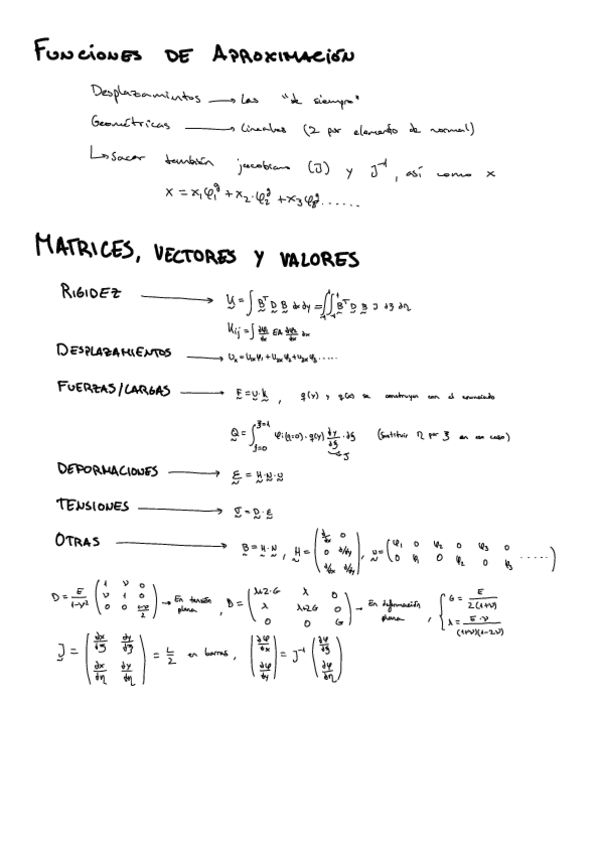 FUNCIONES DE APROXIMACIÓN
Desplazamientos → Las "de siempre"
Geométricas → Lineales (2 por elemento de normal)
↳ Sacar también jacobiano (J) y J⁻¹, así como x
x = x₁φ₁ᵍ + x₂·φ₂ᵍ + x₃φ₃ᵍ ......
MATRICES, VECTORES Y VALORES
RIGIDEZ → K = ∫ Bᵀ D B dx dy = ∫∫ Bᵀ D B J dξ dη
Kij = ∫ dφi/dx EA dφj/dx dx
DESPLAZAMIENTOS →
FUERZAS/CARGAS → F = U·K, q(y) y q(x) se construyen con el enunciado
Q = ∫ φi(η=0)·q(y) dy/dξ·dξ (Sustituir η por ξ en su caso)
J
DEFORMACIONES → ε = H·N·U
TENSIONES → σ = D·ε
OTRAS → B = H·N, H = (d/dx 0; 0 d/dy; d/dx d/dy), N = (φ₁ 0 φ₂ 0 φ₃ 0; 0 φ₁ 0 φ₂ 0 φ₃ .....)
D = E/1-ν² (1 ν 0; ν 1 0; 0 0 1-ν/2) → En tensión plana, D = (λ+2·G λ 0; λ λ+2G 0; 0 0 G) → En deformación plana, { G = E/2(1+ν) λ = E·ν/(1+ν)(1-2ν)
J = (∂x/∂ξ ∂y/∂ξ; ∂x/∂η ∂y/∂η) = L/2 en barras, (∂φ/∂x; ∂φ/∂y) = J⁻¹ (∂φ/∂ξ; ∂φ/∂η)